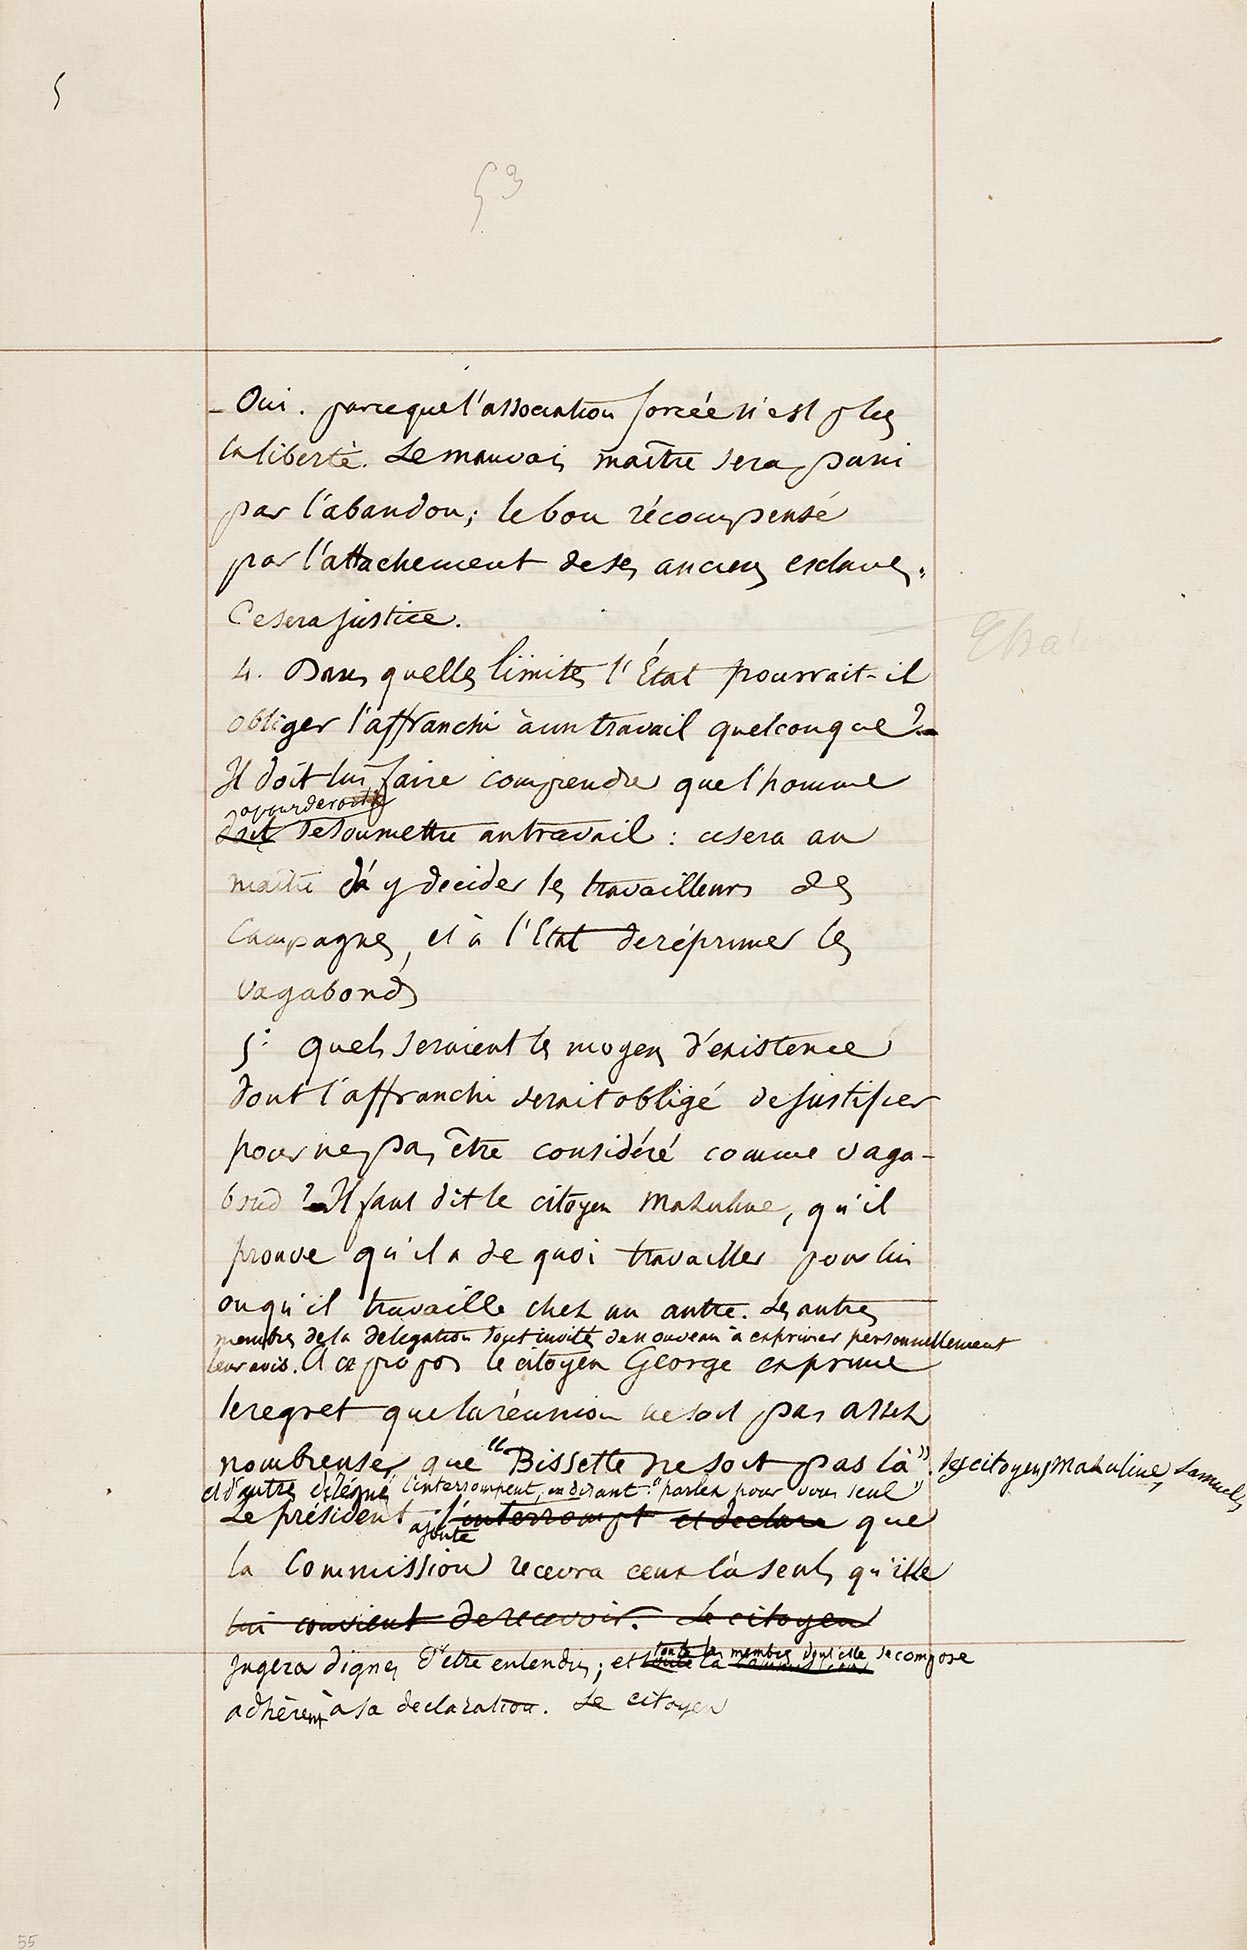 5
53
- Oui. parceque l'association forcée n'est plus
la liberté. Le mauvais maître sera puni
par l'abandon; le bon récompensé
par l'attachement de ses anciens esclaves.
Ce sera justice.
4. Dans quelles limites l'État pourrait-il
obliger l'affranchi à un travail quelconque? -
Il doit lui faire comprendre que l'homme
doit se soumettre au travail: ce sera au
maître d'y decider les travailleurs des
Campagnes, et à l'Etat de réprimer les
vagabonds
5° Quels seraient les moyens d'existence
dont l'affranchi serait obligé de justifier
pour ne pas être considéré comme vaga-
bond? - Il faut dit le citoyen Mazuline, qu'il
prouve qu'il a de quoi travailler pour lui
ou qu'il travaille chez un autre. Les autres
membres de la délégation sont invités de nouveau à exprimer personnellement
leur avis. A ce propos le citoyen George exprime
le regret que la réunion ne soit pas assez
nombreuse, que "Bissette ne soit pas là". Les citoyens Mazuline, Lamuels
et d'autres délégués l'interrompent, en disant: "parlez pour vous seul"
Le président l'interrompt et declare que
ajoute
la Commission recevra ceux là seuls qu'elle
lui convient de recevoir. Le citoyen
jugera dignes d'être entendus; et toute la commission
tous les membres dont elle se compose
adhèrent à sa declaration. Le citoyen
55